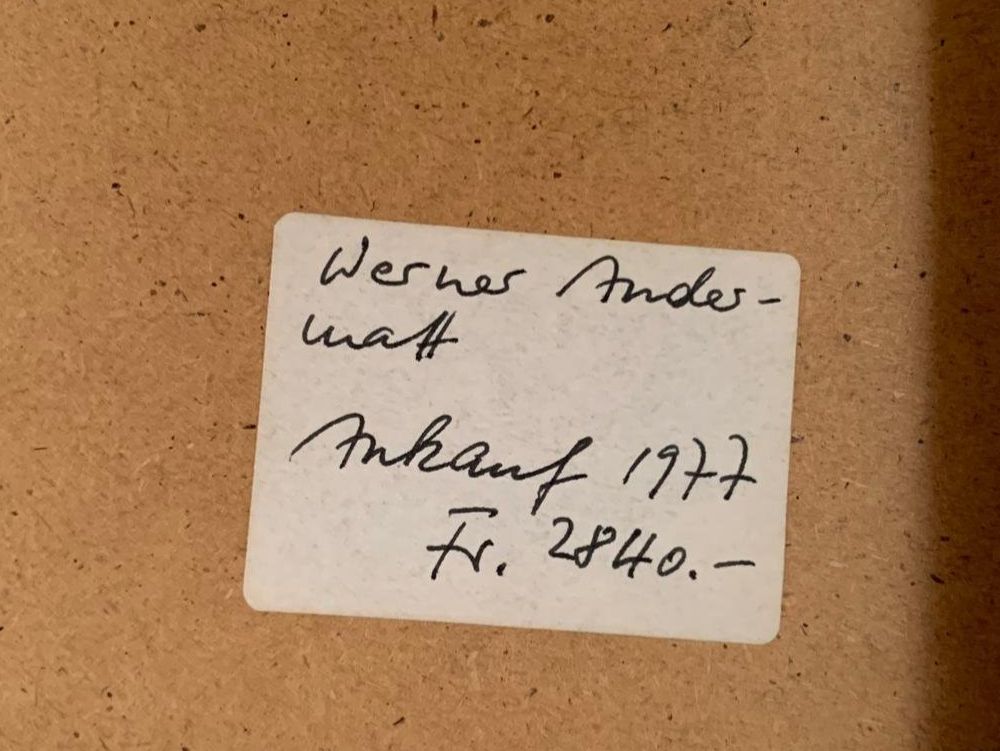 Werner Ander-
matt
Ankauf 1977
Fr. 2840.-